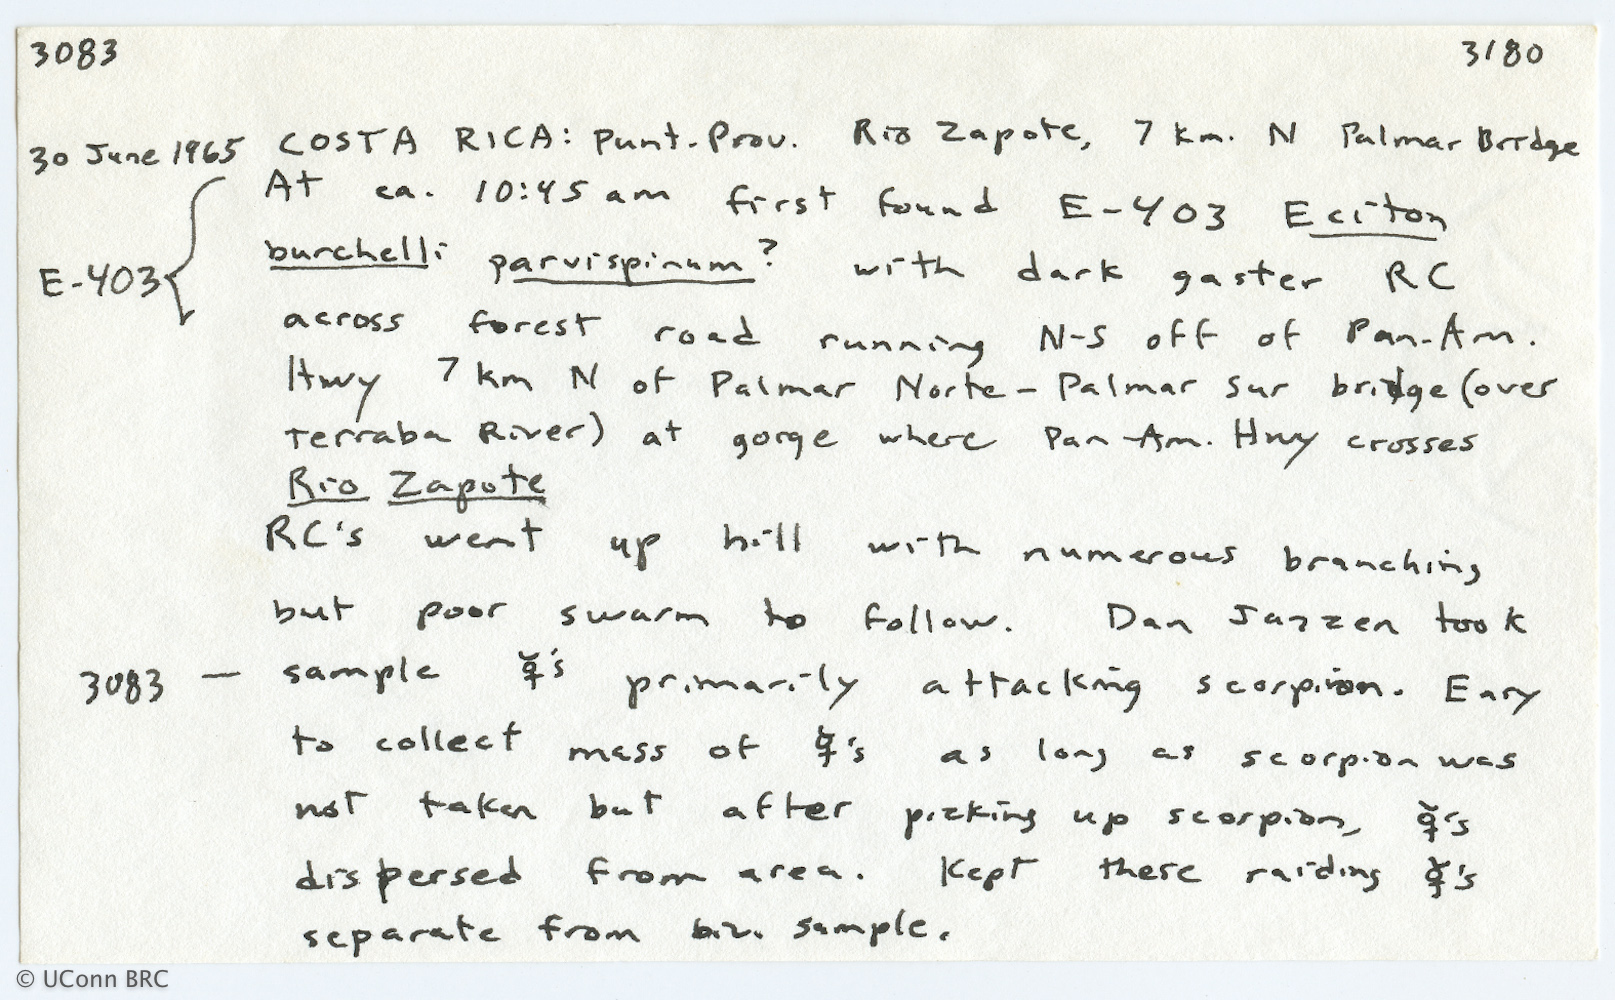 3083 3180
30 June 1965 COSTA RICA: Punt. Prov. Rio Zapote, 7 km. N Palmar Bridge
At ca. 10:45 am first found E-403 Eciton
E-403 burchelli parvispinum? with dark gaster RC
across forest road running N-S off of Pan-Am.
Hwy 7 km N of Palmar Norte - Palmar Sur bridge (over
Terraba River) at gorge where Pan-Am. Hwy crosses
Rio Zapote
RC's went up hill with numerous branching
but poor swarm to follow. Dan Janzen took
3083 — sample ☿'s primarily attacking scorpion. Easy
to collect mass of ☿'s as long as scorpion was
not taken but after picking up scorpion, ☿'s
dispersed from area. Kept these raiding ☿'s
separate from biv. sample.
© UConn BRC